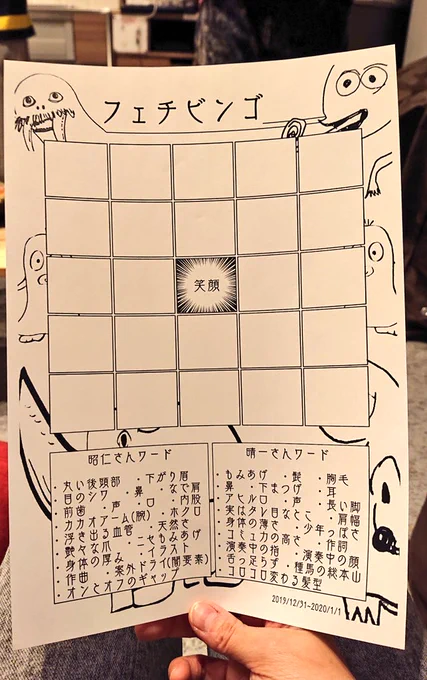 フェチビンゴ
笑顔
昭仁さんワード
・丸い後頭部 ・下がり眉
・目のシワ ・鼻 ・なで肩
・前歯 ・声 ・口 ・内股
・カカオアーム(腕) ・ホクロ
・浮き出る血管 ・天然さ
・艶々な爪 ・ニセもみあげ
・身体の厚み ・イラスト
・作曲 ・案外ドライ(闇要素)
・オンとオフのギャップ
晴一さんワード
・もみあげ ・髭 ・胸毛
・鼻 ・下まつげ ・耳
・アヒル口 ・声 ・長い脚
・実はタレ目 肩幅
・身体の薄さ ・少年ぽさ
・コミュ力の高さ ・作詞
・演奏中の指 ・演奏中の顔
・舌っ足らず ・種馬の総本山
・コロコロ変わる髪型
2019/12/31~2020/1/1